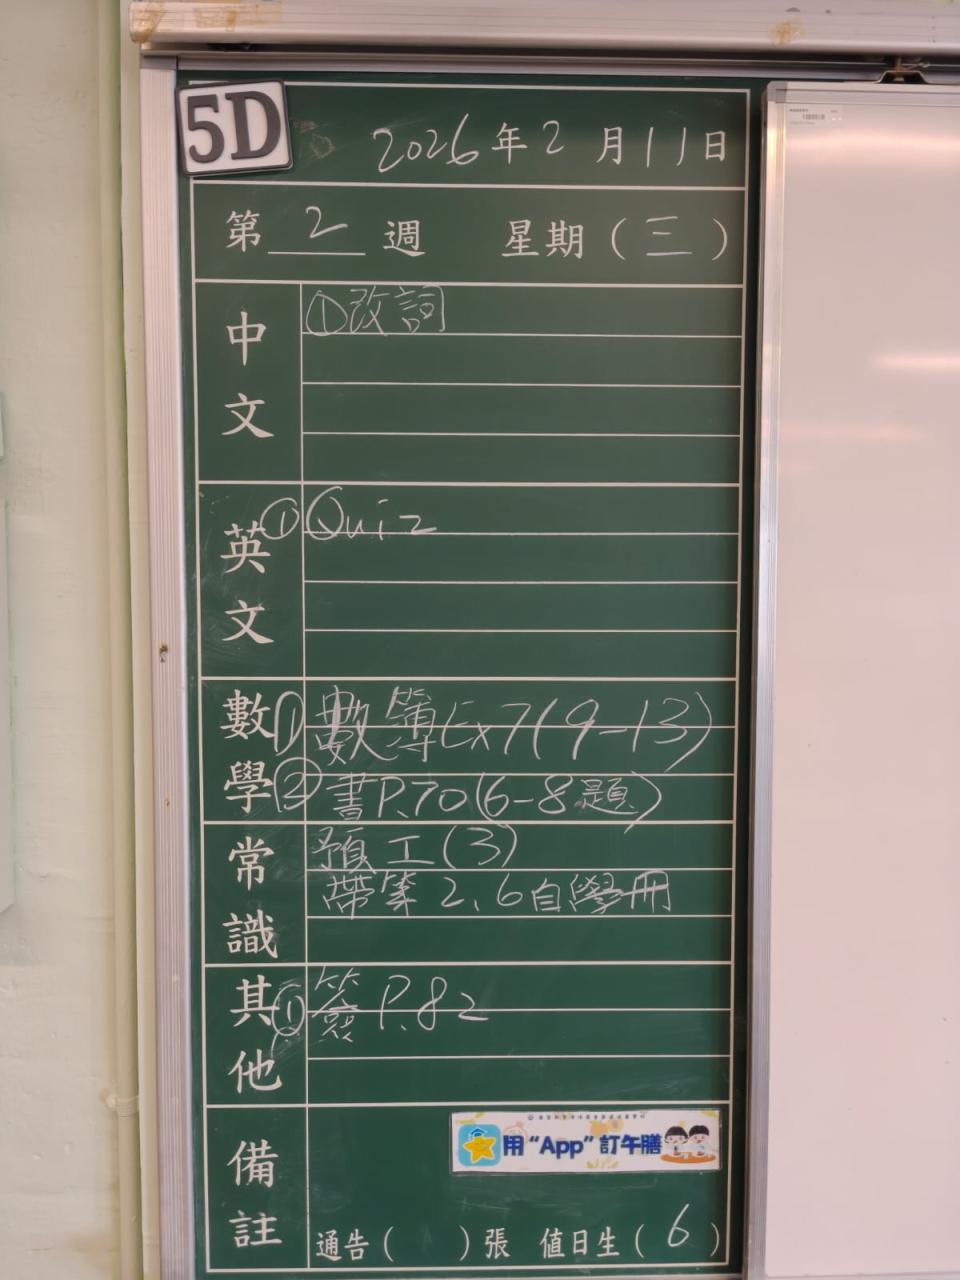 5D
2026年2月11日
第2週 星期(三)
中文
①改詞
英文
①Quiz
數學
①數簿Ex7(9-13)
②書P.70(6-8題)
常識
預工(3)
帶第2、6自學冊
其他
①簽P.82
備註
用“App”訂午膳
通告( )張 值日生(6)